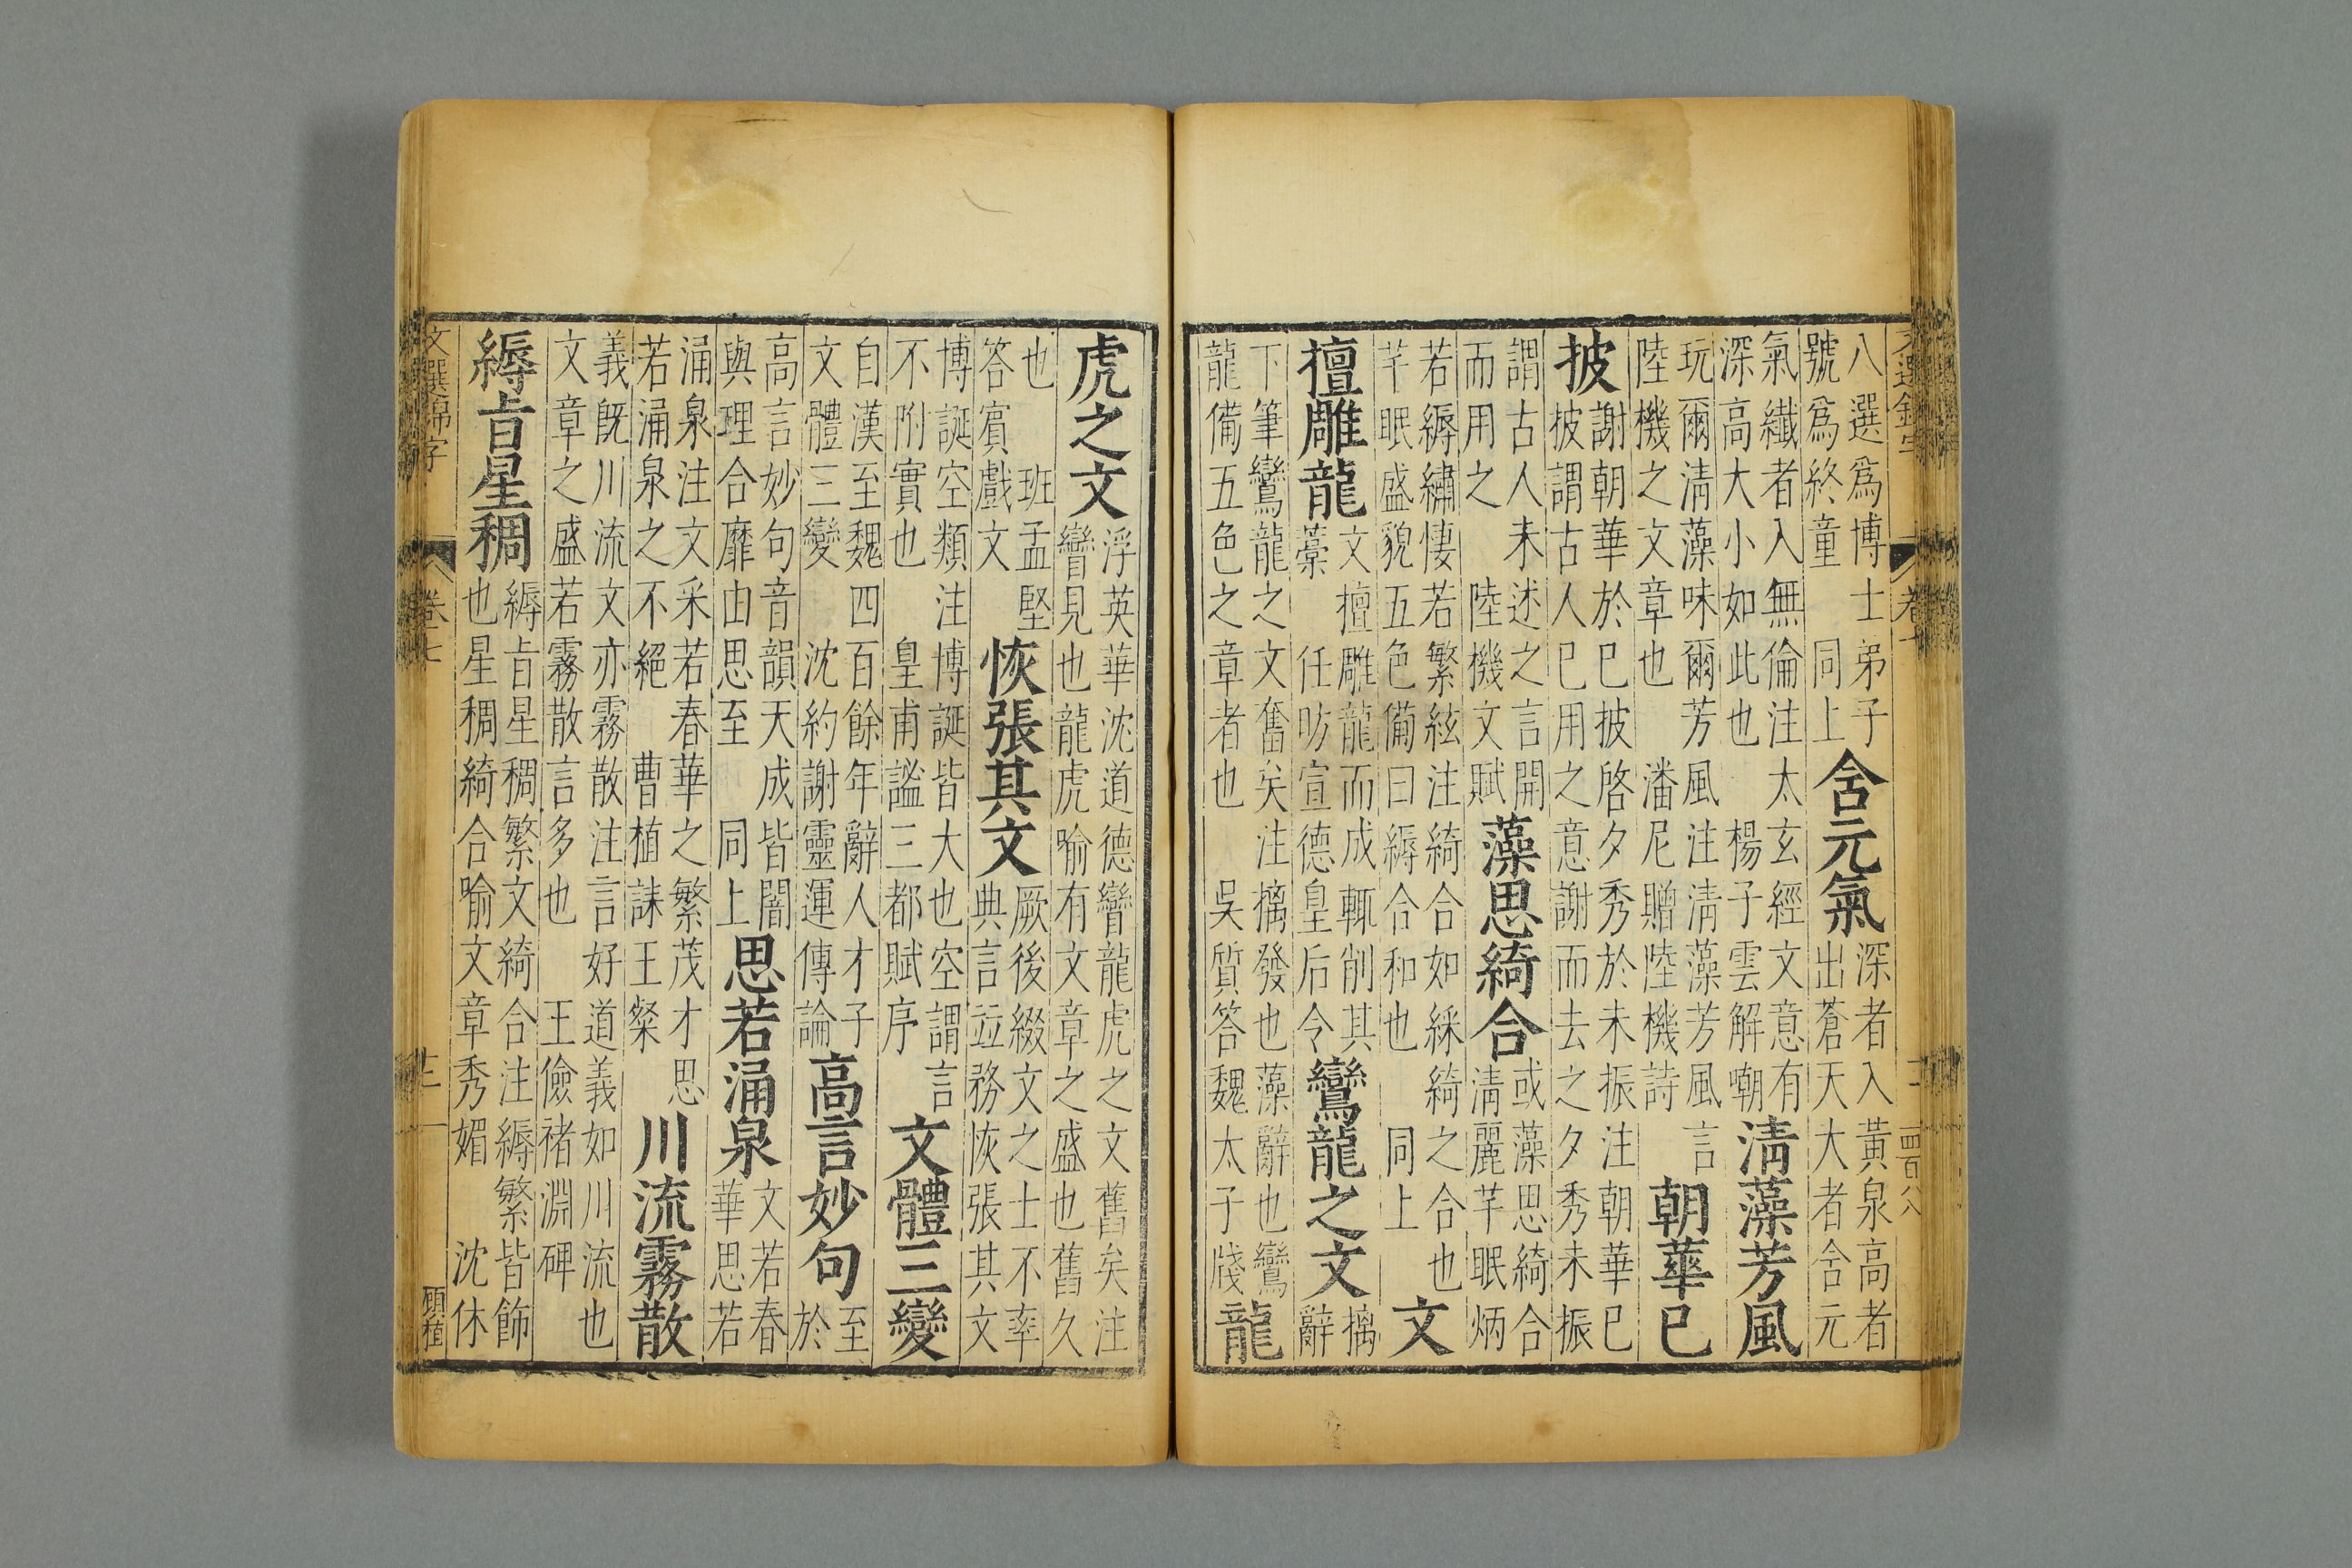 八選爲博士弟子
號爲終童　同上
含元氣
深者入黃泉高者
出蒼天大者含元
氣纖者入無倫注太玄經文意有
深高大小如此也　楊子雲解嘲
清藻芳風
玩爾清藻味爾芳風注清藻芳風言
陸機之文章也　潘尼贈陸機詩
朝華已
披
謝朝華於已披啓夕秀於未振注朝華已
披謂古人已用之意謝而去之夕秀未振
謂古人未述之言開
而用之　陸機文賦
藻思綺合
或藻思綺合
清麗芊眠炳
若縟繡悽若繁絃注綺合如綵綺之合也
芊眠盛貌五色備曰縟合和也　同上
文
擅雕龍
文擅雕龍而成輒削其
藁　任昉宣德皇后令
鸞龍之文
摛
辭
下筆鸞龍之文奮矣注摛發也藻辭也鸞
龍備五色之章者也　吳質答魏太子牋
龍
四百八
虎之文
浮英華沈道德彎龍虎之文舊矣注
彎見也龍虎喻有文章之盛也舊久
也　班孟堅
答賓戲文
恢張其文
厥後綴文之士不率
典言並務恢張其文
博誕空類注博誕皆大也空謂言
不附實也　皇甫謐三都賦序
文體三變
自漢至魏四百餘年辭人才子
文體三變　沈約謝靈運傳論
高言妙句
至
於
高言妙句音韻天成皆闇
與理合靡由思至　同上
思若涌泉
文若春
華思若
涌泉注文采若春華之繁茂才思
若涌泉之不絕　曹植誄王粲
川流霧散
義既川流文亦霧散注言好道義如川流也
文章之盛若霧散言多也　王儉褚淵碑
縟旹星稠
縟旹星稠繁文綺合注縟繁皆飾
也星稠綺合喻文章秀媚　沈休
文選錦字
顧植